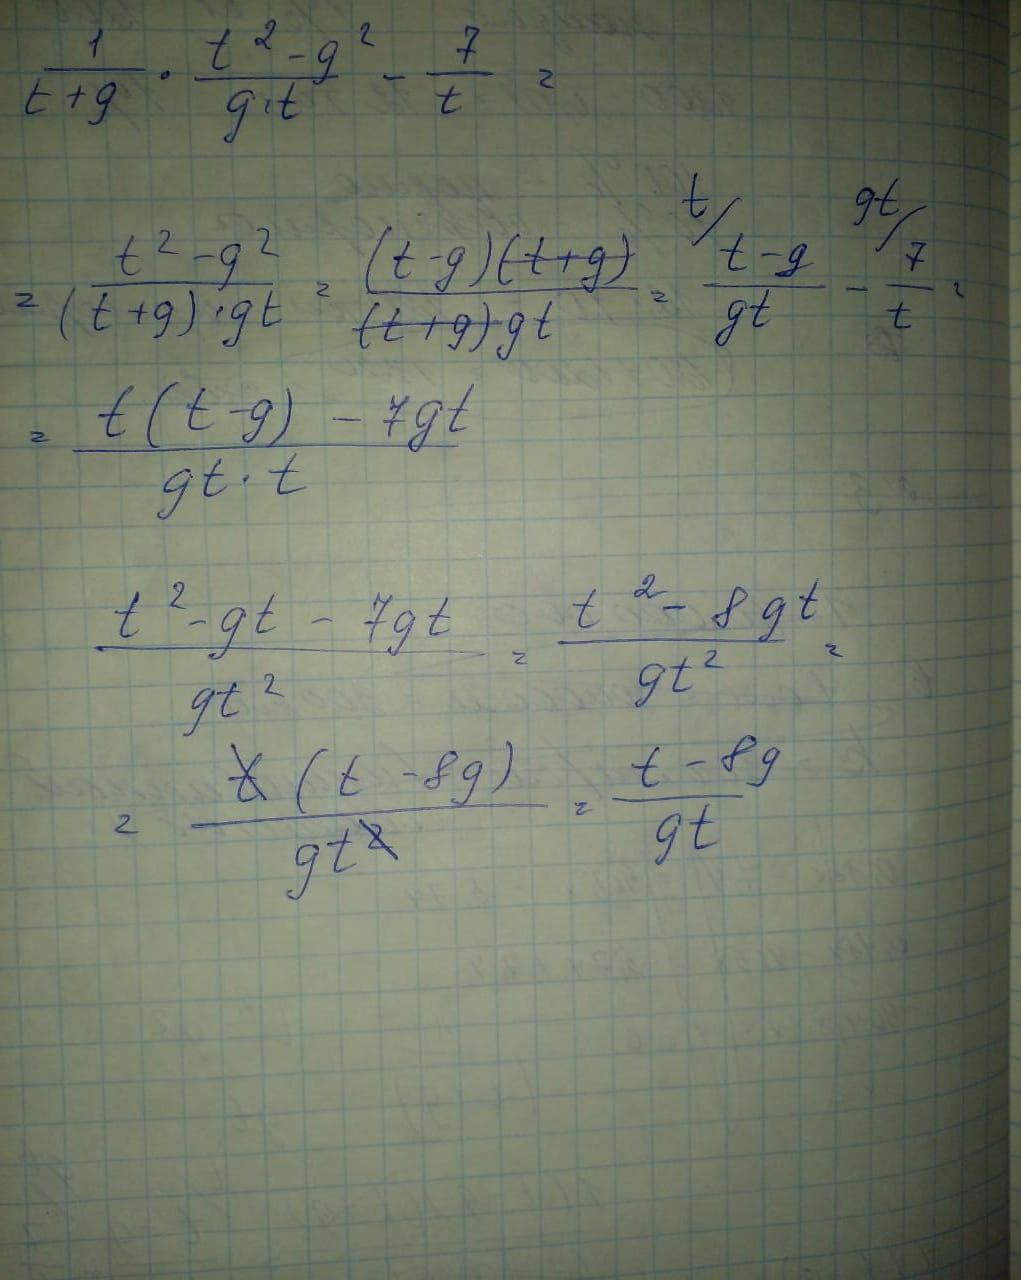 1/(t+g) · (t²-g²)/(g·t) - 7/t =
= (t²-g²)/((t+g)·gt) = ((t-g)(t+g))/((t+g)gt) = t/ (t-g)/(gt) - gt/ 7/t =
= (t(t-g) - 7gt)/(gt·t)
(t²-gt-7gt)/(gt²) = (t²-8gt)/(gt²) =
= (t(t-8g))/(gt²) = (t-8g)/(gt)